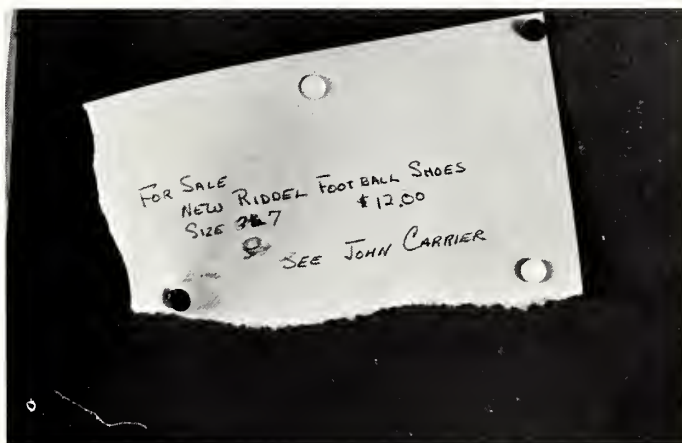 FOR SALE
NEW RIDDEL FOOTBALL SHOES
SIZE 7 $12.00
SEE JOHN CARRIER